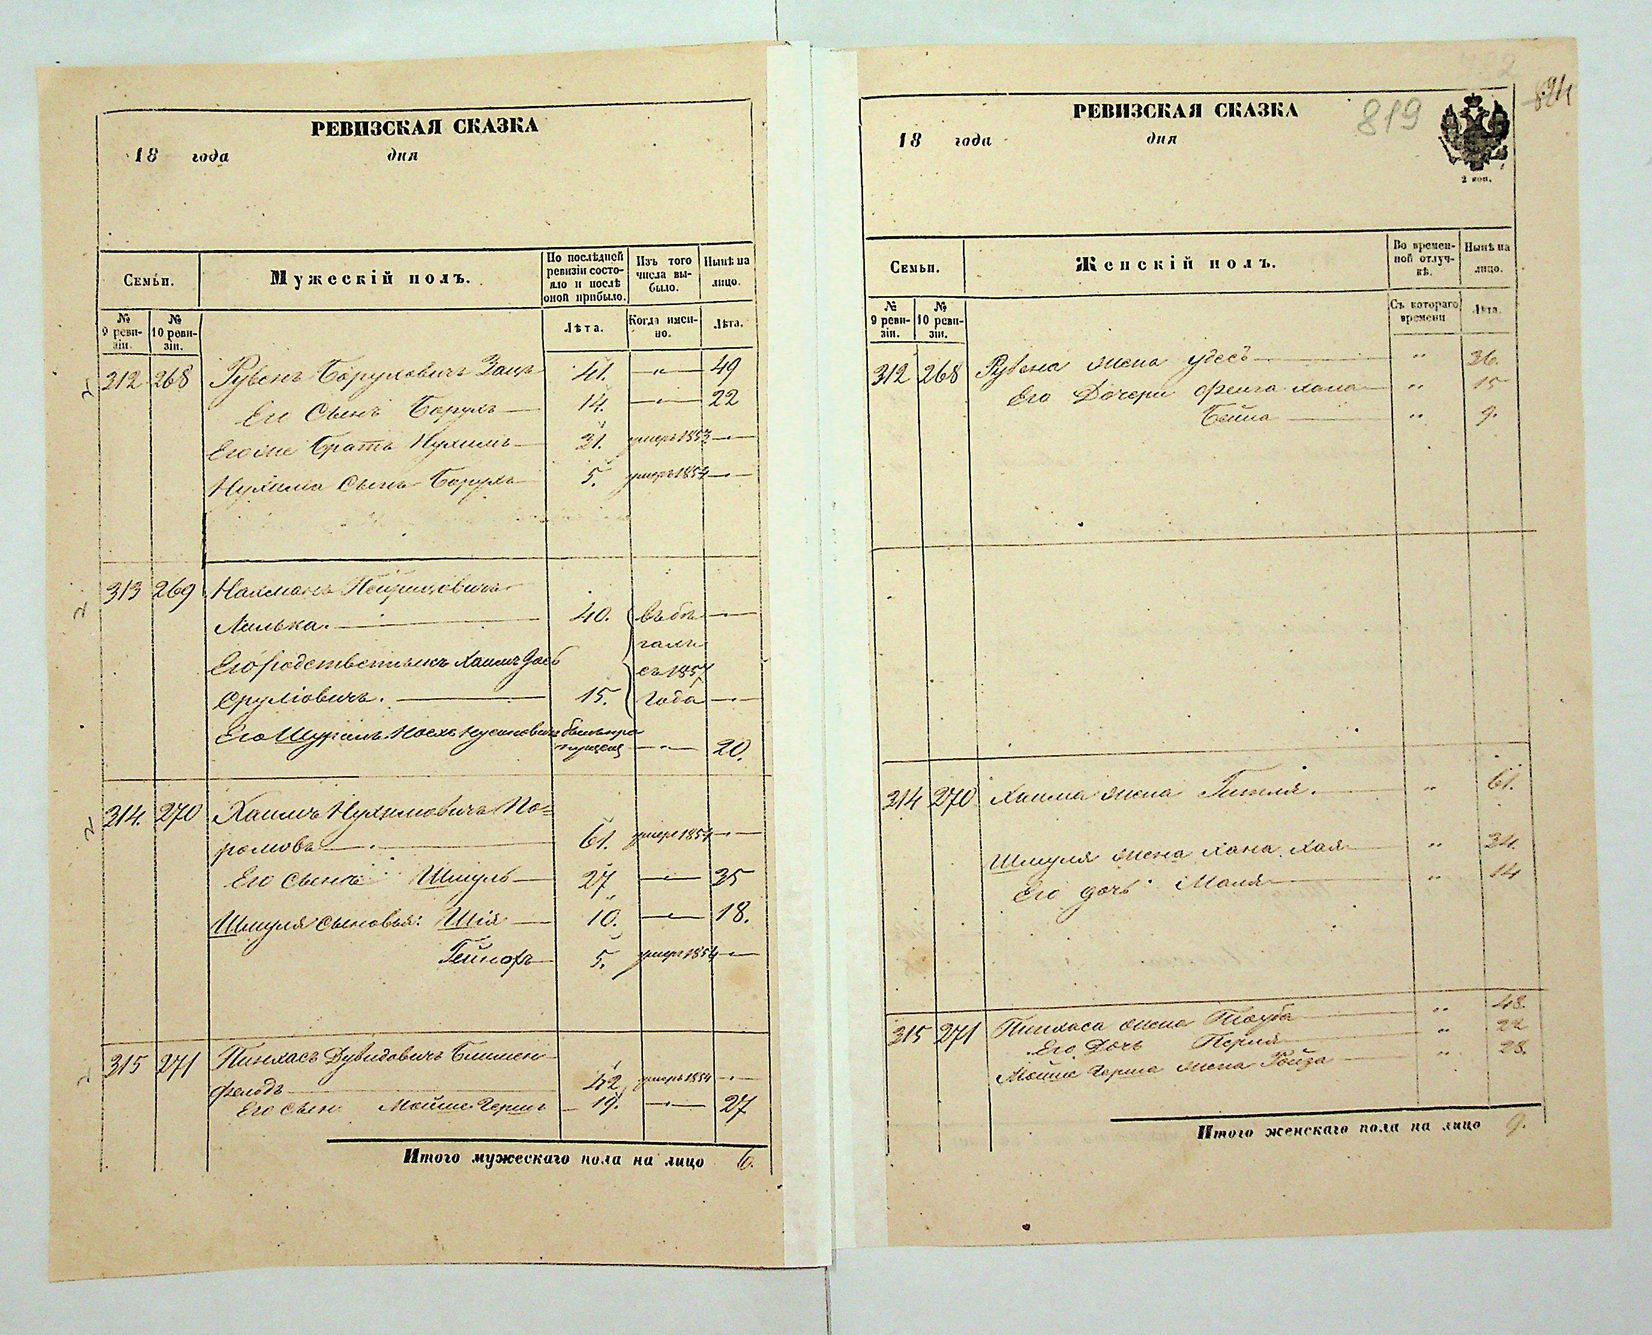 РЕВИЗСКАЯ СКАЗКА
18 года дня
Семьи.
Мужескій полъ.
По послѣдней ревизіи состояло и послѣ оной прибыло.
Изъ того числа выбыло.
Нынѣ на лицо.
№ 9 ревизіи.
№ 10 ревизіи.
Лѣта.
Когда именно.
Лѣта.
312 268 Рувенъ Боруховичъ Зацъ 41. — " — 49
Его Сынъ Борухъ 14. — " — 22
Его же братъ Нухимъ 21. умеръ 1853 —
Нухима Сынъ Борухъ 5. умеръ 1854 —
313 269 Нахманъ
40. въ бѣ
гахъ
Его родственникъ Хаимъ съ 1857
Сруліовичъ. 15. Года —
Его Шуринъ Іось былъ про
— " — 20.
314. 270 Хаимъ Нухимовичъ По=
61. умеръ 1854 —
Его сынъ Шмуль 27 — " — 35
Шмуля сыновья: Шія 10. — " — 18.
5. умеръ 1854 —
315 271 Пинхасъ Дувидовичъ
фельдъ 42 умеръ 1854 —
Его сынъ Мойше Герш 19. — " — 27
Итого мужескаго пола на лицо 6.
819
824
РЕВИЗСКАЯ СКАЗКА
18 года дня
2 коп.
Семьи.
Женскій полъ.
Во временной отлучкѣ.
Нынѣ на лицо.
№ 9 ревизіи.
№ 10 ревизіи.
Съ котораго времени
Лѣта.
312 268 Рувена жена " 36.
Его Дочери Фейга Хана " 15
Бейла " 9.
314 270 Хаима жена Гитля. " 61.
Шмуля жена Хана Хая " 34.
Его дочь Маля " 14
315 271 Пинхаса жена Тауба " 48.
Его Дочь Перля " 22
Мойше Герша жена Ройза " 28.
Итого женскаго пола на лицо 9.